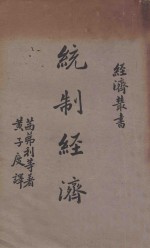 經濟叢書
統制經濟
萬弗利等著
黃子度譯